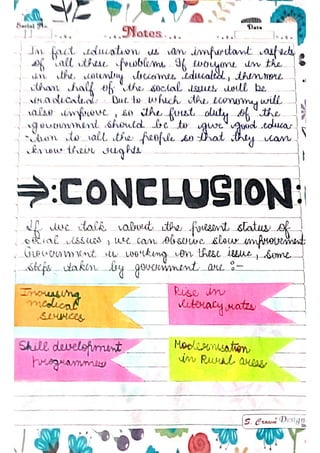 Serial No.
Notes
Date
In fact education is an important aspects
of all these problems. If everyone in the
in the country becomes educated, then more
than half of the social issues will be
eradicated. Due to which the economy will
also improve, so the first duty of the
government should be to give good educa-
-tion to all the people so that they can
know their rights
⇒:CONCLUSION:
If we talk about the present status of
social issues, we can observe slow improvement
Government is working on these issue, some
steps taken by government are :-
Increasing
medical
services
Rise in
literacy rates
Skill development
programmes
Modernisation
in Rural areas
Design